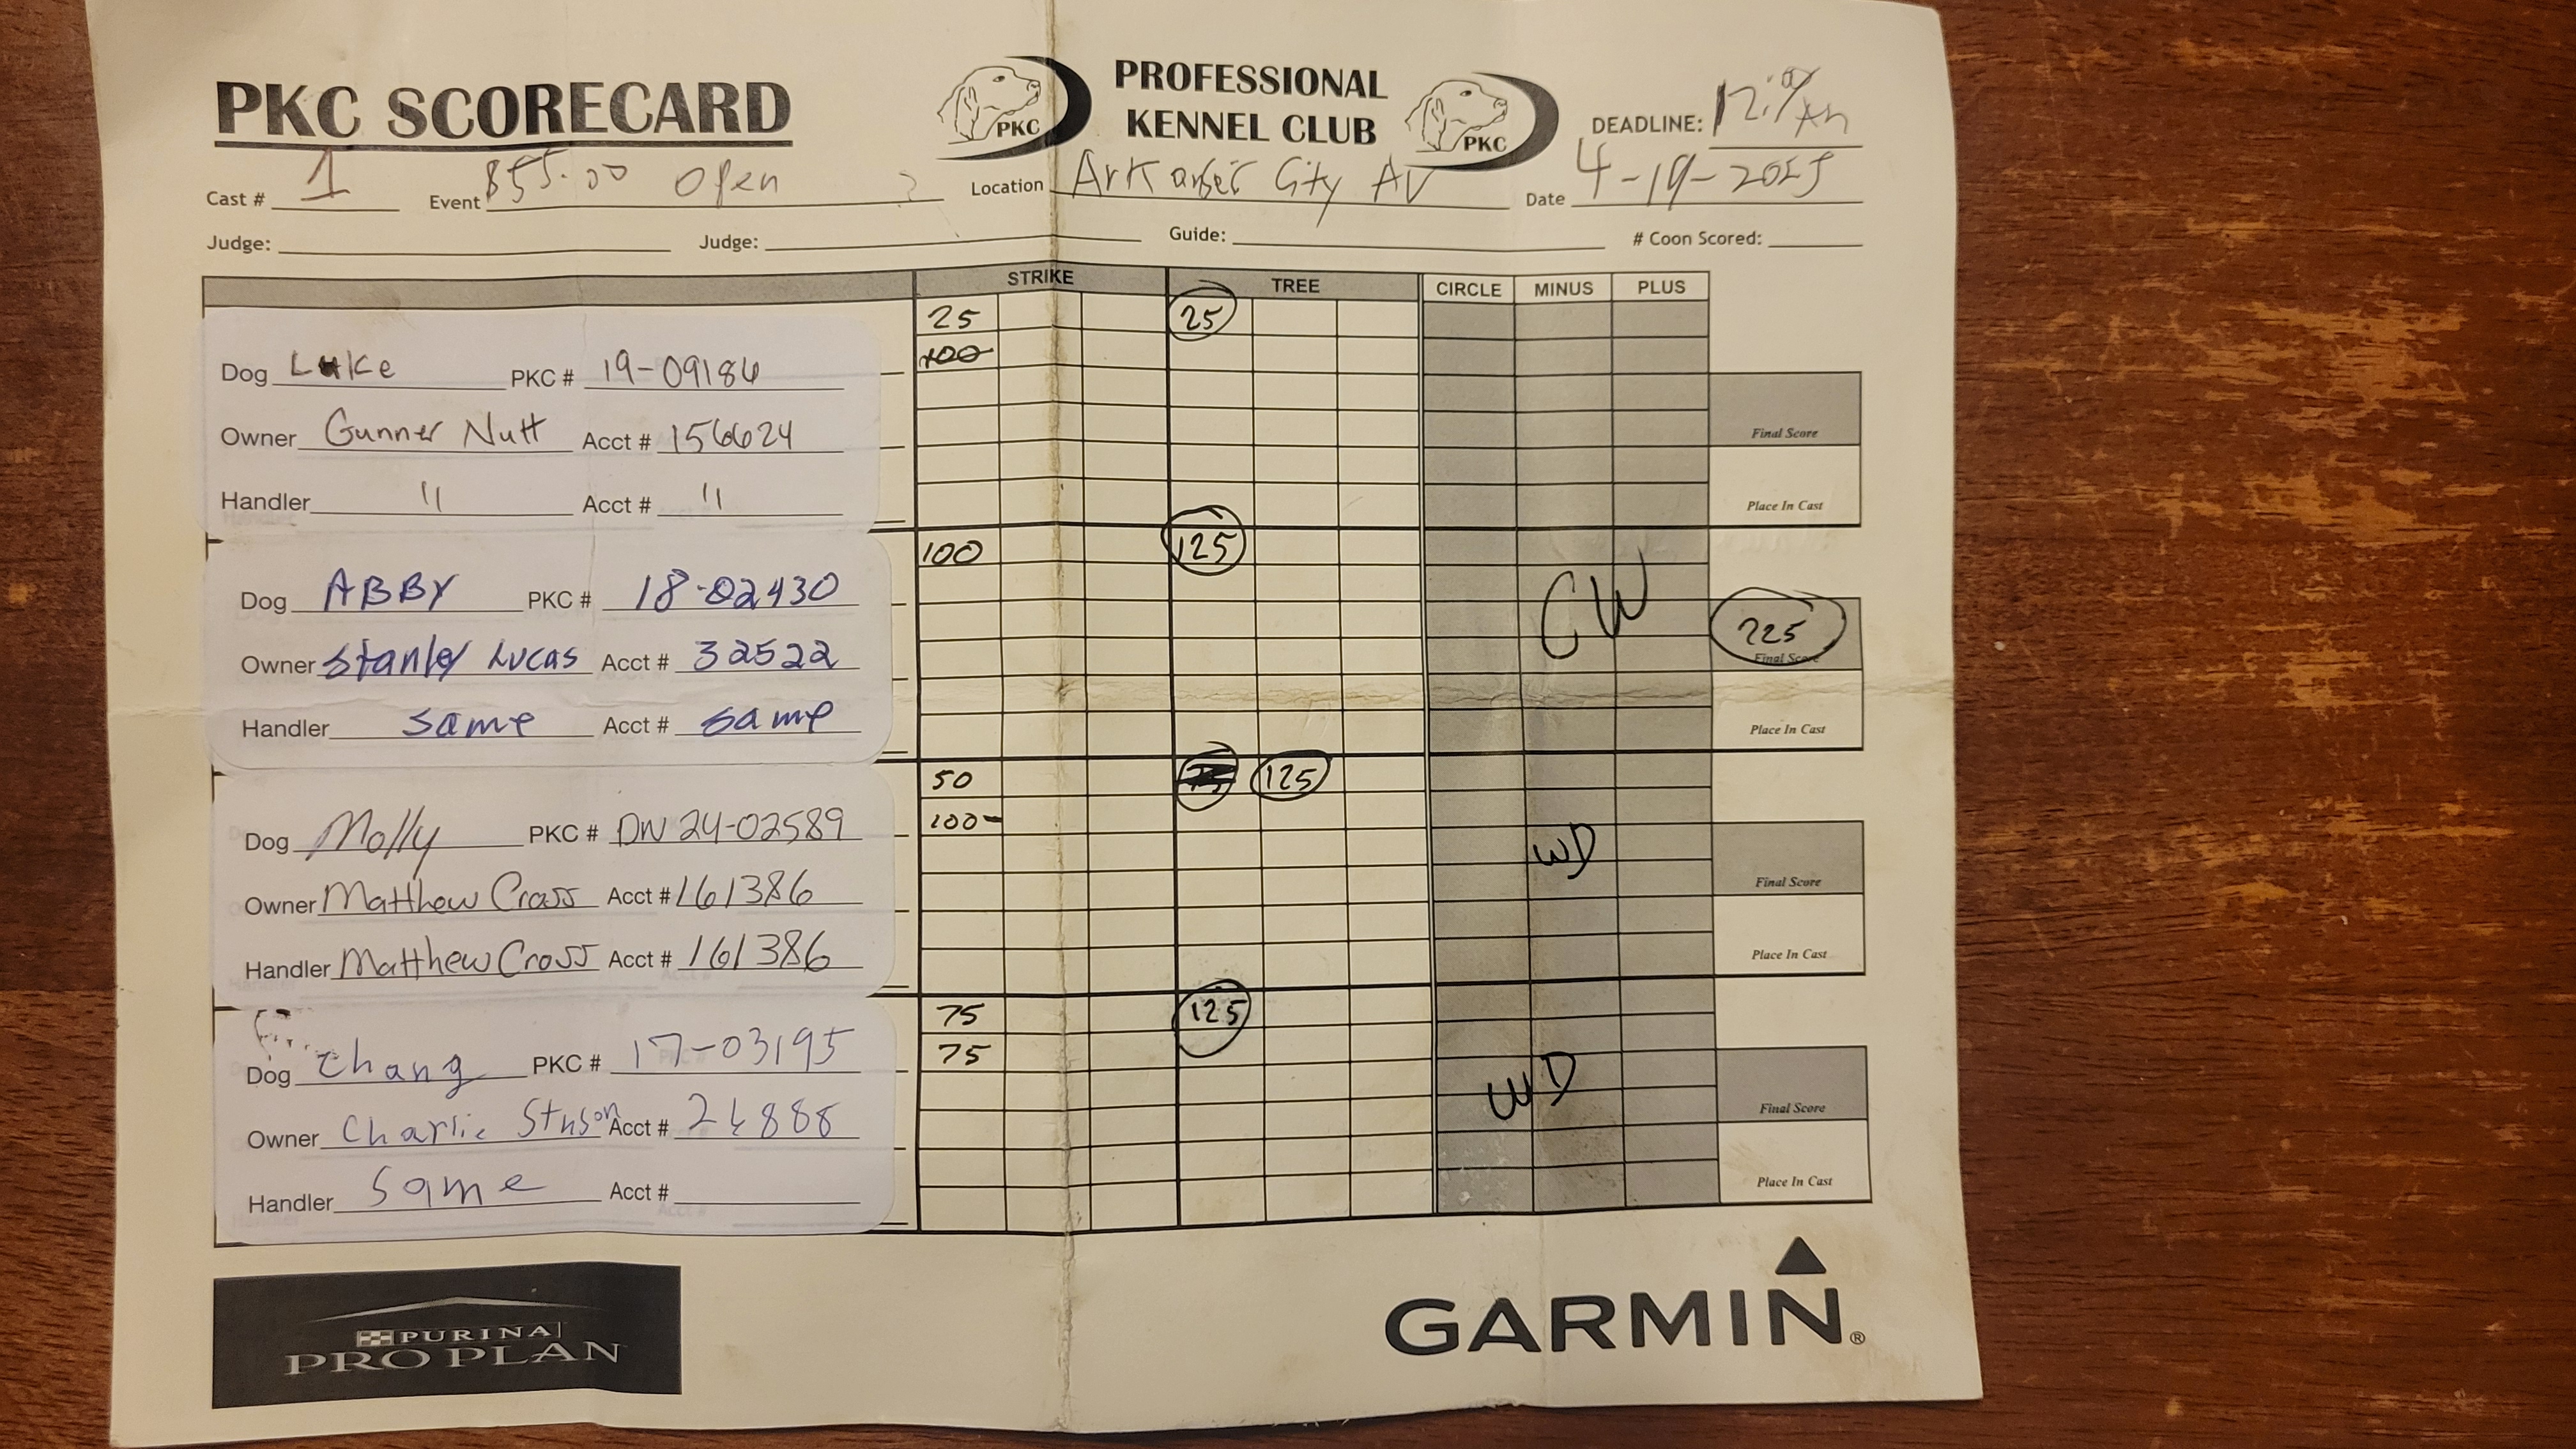 PKC SCORECARD
PKC
PROFESSIONAL
KENNEL CLUB
PKC
DEADLINE:
Cast # 1 Event $55.00 Open Location City Date 4-19-2025
Judge: Judge: Guide: # Coon Scored:
STRIKE TREE CIRCLE MINUS PLUS
25 25
100
Dog Luke PKC # 19-09186
Owner Gunner Nutt Acct # 156624
Final Score
Handler " Acct # "
Place In Cast
100 125
Dog ABBY PKC # 18-02430
CW 225
Owner Stanley Lucas Acct # 32522
Final Score
Handler same Acct # same
Place In Cast
50 125
100-
Dog Molly PKC # DN 24-02589
WD
Owner Matthew Cross Acct # 161386
Final Score
Handler Matthew Cross Acct # 161386
Place In Cast
75 125
75
Dog Chang PKC # 17-03195
WD
Owner Charlie Acct #
Final Score
Handler Same Acct #
Place In Cast
PURINA
PRO PLAN
GARMIN®